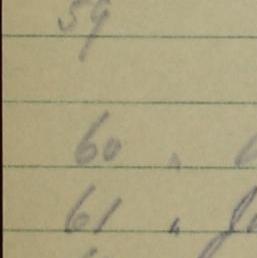 59
60 "
61 "